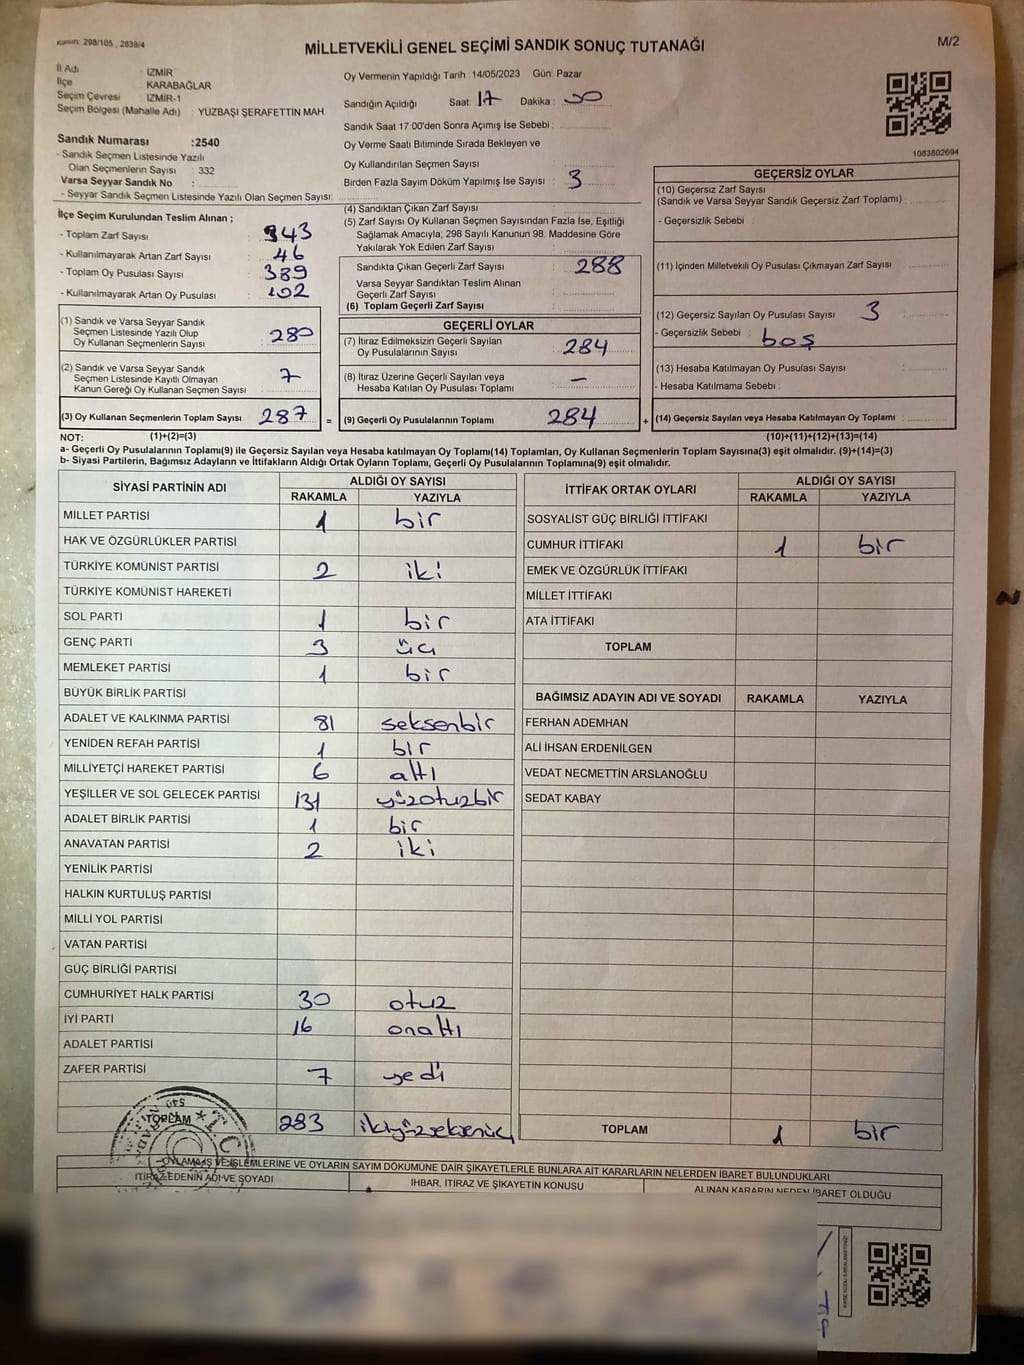 Kanun: 298/105, 2839/4
MİLLETVEKİLİ GENEL SEÇİMİ SANDIK SONUÇ TUTANAĞI
M/2
İl Adı : İZMİR
İlçe : KARABAĞLAR
Seçim Çevresi : İZMİR-1
Seçim Bölgesi (Mahalle Adı) : YÜZBAŞI ŞERAFETTİN MAH
Sandık Numarası :2540
- Sandık Seçmen Listesinde Yazılı
Olan Seçmenlerin Sayısı : 332
Varsa Seyyar Sandık No :
- Seyyar Sandık Seçmen Listesinde Yazılı Olan Seçmen Sayısı:
Oy Vermenin Yapıldığı Tarih :14/05/2023 Gün: Pazar
Sandığın Açıldığı Saat: 17 Dakika : 00
Sandık Saat 17 00'den Sonra Açımış İse Sebebi :
Oy Verme Saati Bitiminde Sırada Bekleyen ve
Oy Kullandırılan Seçmen Sayısı :
Birden Fazla Sayım Döküm Yapılmış İse Sayısı : 3
1083802694
İlçe Seçim Kurulundan Teslim Alınan ;
- Toplam Zarf Sayısı : 343
- Kullanılmayarak Artan Zarf Sayısı : 46
- Toplam Oy Pusulası Sayısı : 389
- Kullanılmayarak Artan Oy Pusulası : 102
(1) Sandık ve Varsa Seyyar Sandık
Seçmen Listesinde Yazılı Olup
Oy Kullanan Seçmenlerin Sayısı : 280
(2) Sandık ve Varsa Seyyar Sandık
Seçmen Listesinde Kayıtlı Olmayan
Kanun Gereği Oy Kullanan Seçmen Sayısı : 7
(3) Oy Kullanan Seçmenlerin Toplam Sayısı 287 =
(4) Sandıktan Çıkan Zarf Sayısı :
(5) Zarf Sayısı Oy Kullanan Seçmen Sayısından Fazla İse, Eşitliği
Sağlamak Amacıyla; 298 Sayılı Kanunun 98. Maddesine Göre
Yakılarak Yok Edilen Zarf Sayısı :
Sandıkta Çıkan Geçerli Zarf Sayısı : 288
Varsa Seyyar Sandıktan Teslim Alınan
Geçerli Zarf Sayısı :
(6) Toplam Geçerli Zarf Sayısı :
GEÇERLİ OYLAR
(7) İtiraz Edilmeksizin Geçerli Sayılan
Oy Pusulalarının Sayısı : 284
(8) İtiraz Üzerine Geçerli Sayılan veya
Hesaba Katılan Oy Pusulası Toplamı : -
(9) Geçerli Oy Pusulalarının Toplamı 284 +
GEÇERSİZ OYLAR
(10) Geçersiz Zarf Sayısı
(Sandık ve Varsa Seyyar Sandık Geçersiz Zarf Toplamı) :
- Geçersizlik Sebebi :
(11) İçinden Milletvekili Oy Pusulası Çıkmayan Zarf Sayısı :
(12) Geçersiz Sayılan Oy Pusulası Sayısı : 3
- Geçersizlik Sebebi : boş
(13) Hesaba Katılmayan Oy Pusulası Sayısı :
- Hesaba Katılmama Sebebi :
(14) Geçersiz Sayılan veya Hesaba Katılmayan Oy Toplamı :
NOT: (1)+(2)=(3) (10)+(11)+(12)+(13)=(14)
a- Geçerli Oy Pusulasının Toplamı(9) ile Geçersiz Sayılan veya Hesaba katılmayan Oy Toplamı(14) Toplamları, Oy Kullanan Seçmenlerin Toplam Sayısına(3) eşit olmalıdır. (9)+(14)=(3)
b- Siyasi Partilerin, Bağımsız Adayların ve İttifakların Aldığı Ortak Oyların Toplamı, Geçerli Oy Pusulalarının Toplamına(9) eşit olmalıdır.
SİYASİ PARTİNİN ADI ALDIĞI OY SAYISI
RAKAMLA YAZIYLA
MİLLET PARTİSİ 1 bir
HAK VE ÖZGÜRLÜKLER PARTİSİ
TÜRKİYE KOMÜNİST PARTİSİ 2 iki
TÜRKİYE KOMÜNİST HAREKETİ
SOL PARTİ 1 bir
GENÇ PARTİ 3 üç
MEMLEKET PARTİSİ 1 bir
BÜYÜK BİRLİK PARTİSİ
ADALET VE KALKINMA PARTİSİ 81 seksenbir
YENİDEN REFAH PARTİSİ 1 bir
MİLLİYETÇİ HAREKET PARTİSİ 6 altı
YEŞİLLER VE SOL GELECEK PARTİSİ 131 yüzotuzbir
ADALET BİRLİK PARTİSİ 1 bir
ANAVATAN PARTİSİ 2 iki
YENİLİK PARTİSİ
HALKIN KURTULUŞ PARTİSİ
MİLLİ YOL PARTİSİ
VATAN PARTİSİ
GÜÇ BİRLİĞİ PARTİSİ
CUMHURİYET HALK PARTİSİ 30 otuz
İYİ PARTİ 16 onaltı
ADALET PARTİSİ
ZAFER PARTİSİ 7 yedi
TOPLAM 283 ikiyüzseksenüç
T.C
İTTİFAK ORTAK OYLARI ALDIĞI OY SAYISI
RAKAMLA YAZIYLA
SOSYALİST GÜÇ BİRLİĞİ İTTİFAKI
CUMHUR İTTİFAKI 1 bir
EMEK VE ÖZGÜRLÜK İTTİFAKI
MİLLET İTTİFAKI
ATA İTTİFAKI
TOPLAM
BAĞIMSIZ ADAYIN ADI VE SOYADI RAKAMLA YAZIYLA
FERHAN ADEMHAN
ALİ İHSAN ERDENİLGEN
VEDAT NECMETTİN ARSLANOĞLU
SEDAT KABAY
TOPLAM 1 bir
OYLAMA İŞ VE İŞLEMLERİNE VE OYLARIN SAYIM DÖKÜMÜNE DAİR ŞİKAYETLERLE BUNLARA AİT KARARLARIN NELERDEN İBARET BULUNDUKLARI
İTİRAZ EDENİN ADI VE SOYADI İHBAR, İTİRAZ VE ŞİKAYETİN KONUSU ALINAN KARARIN NEDEN İBARET OLDUĞU